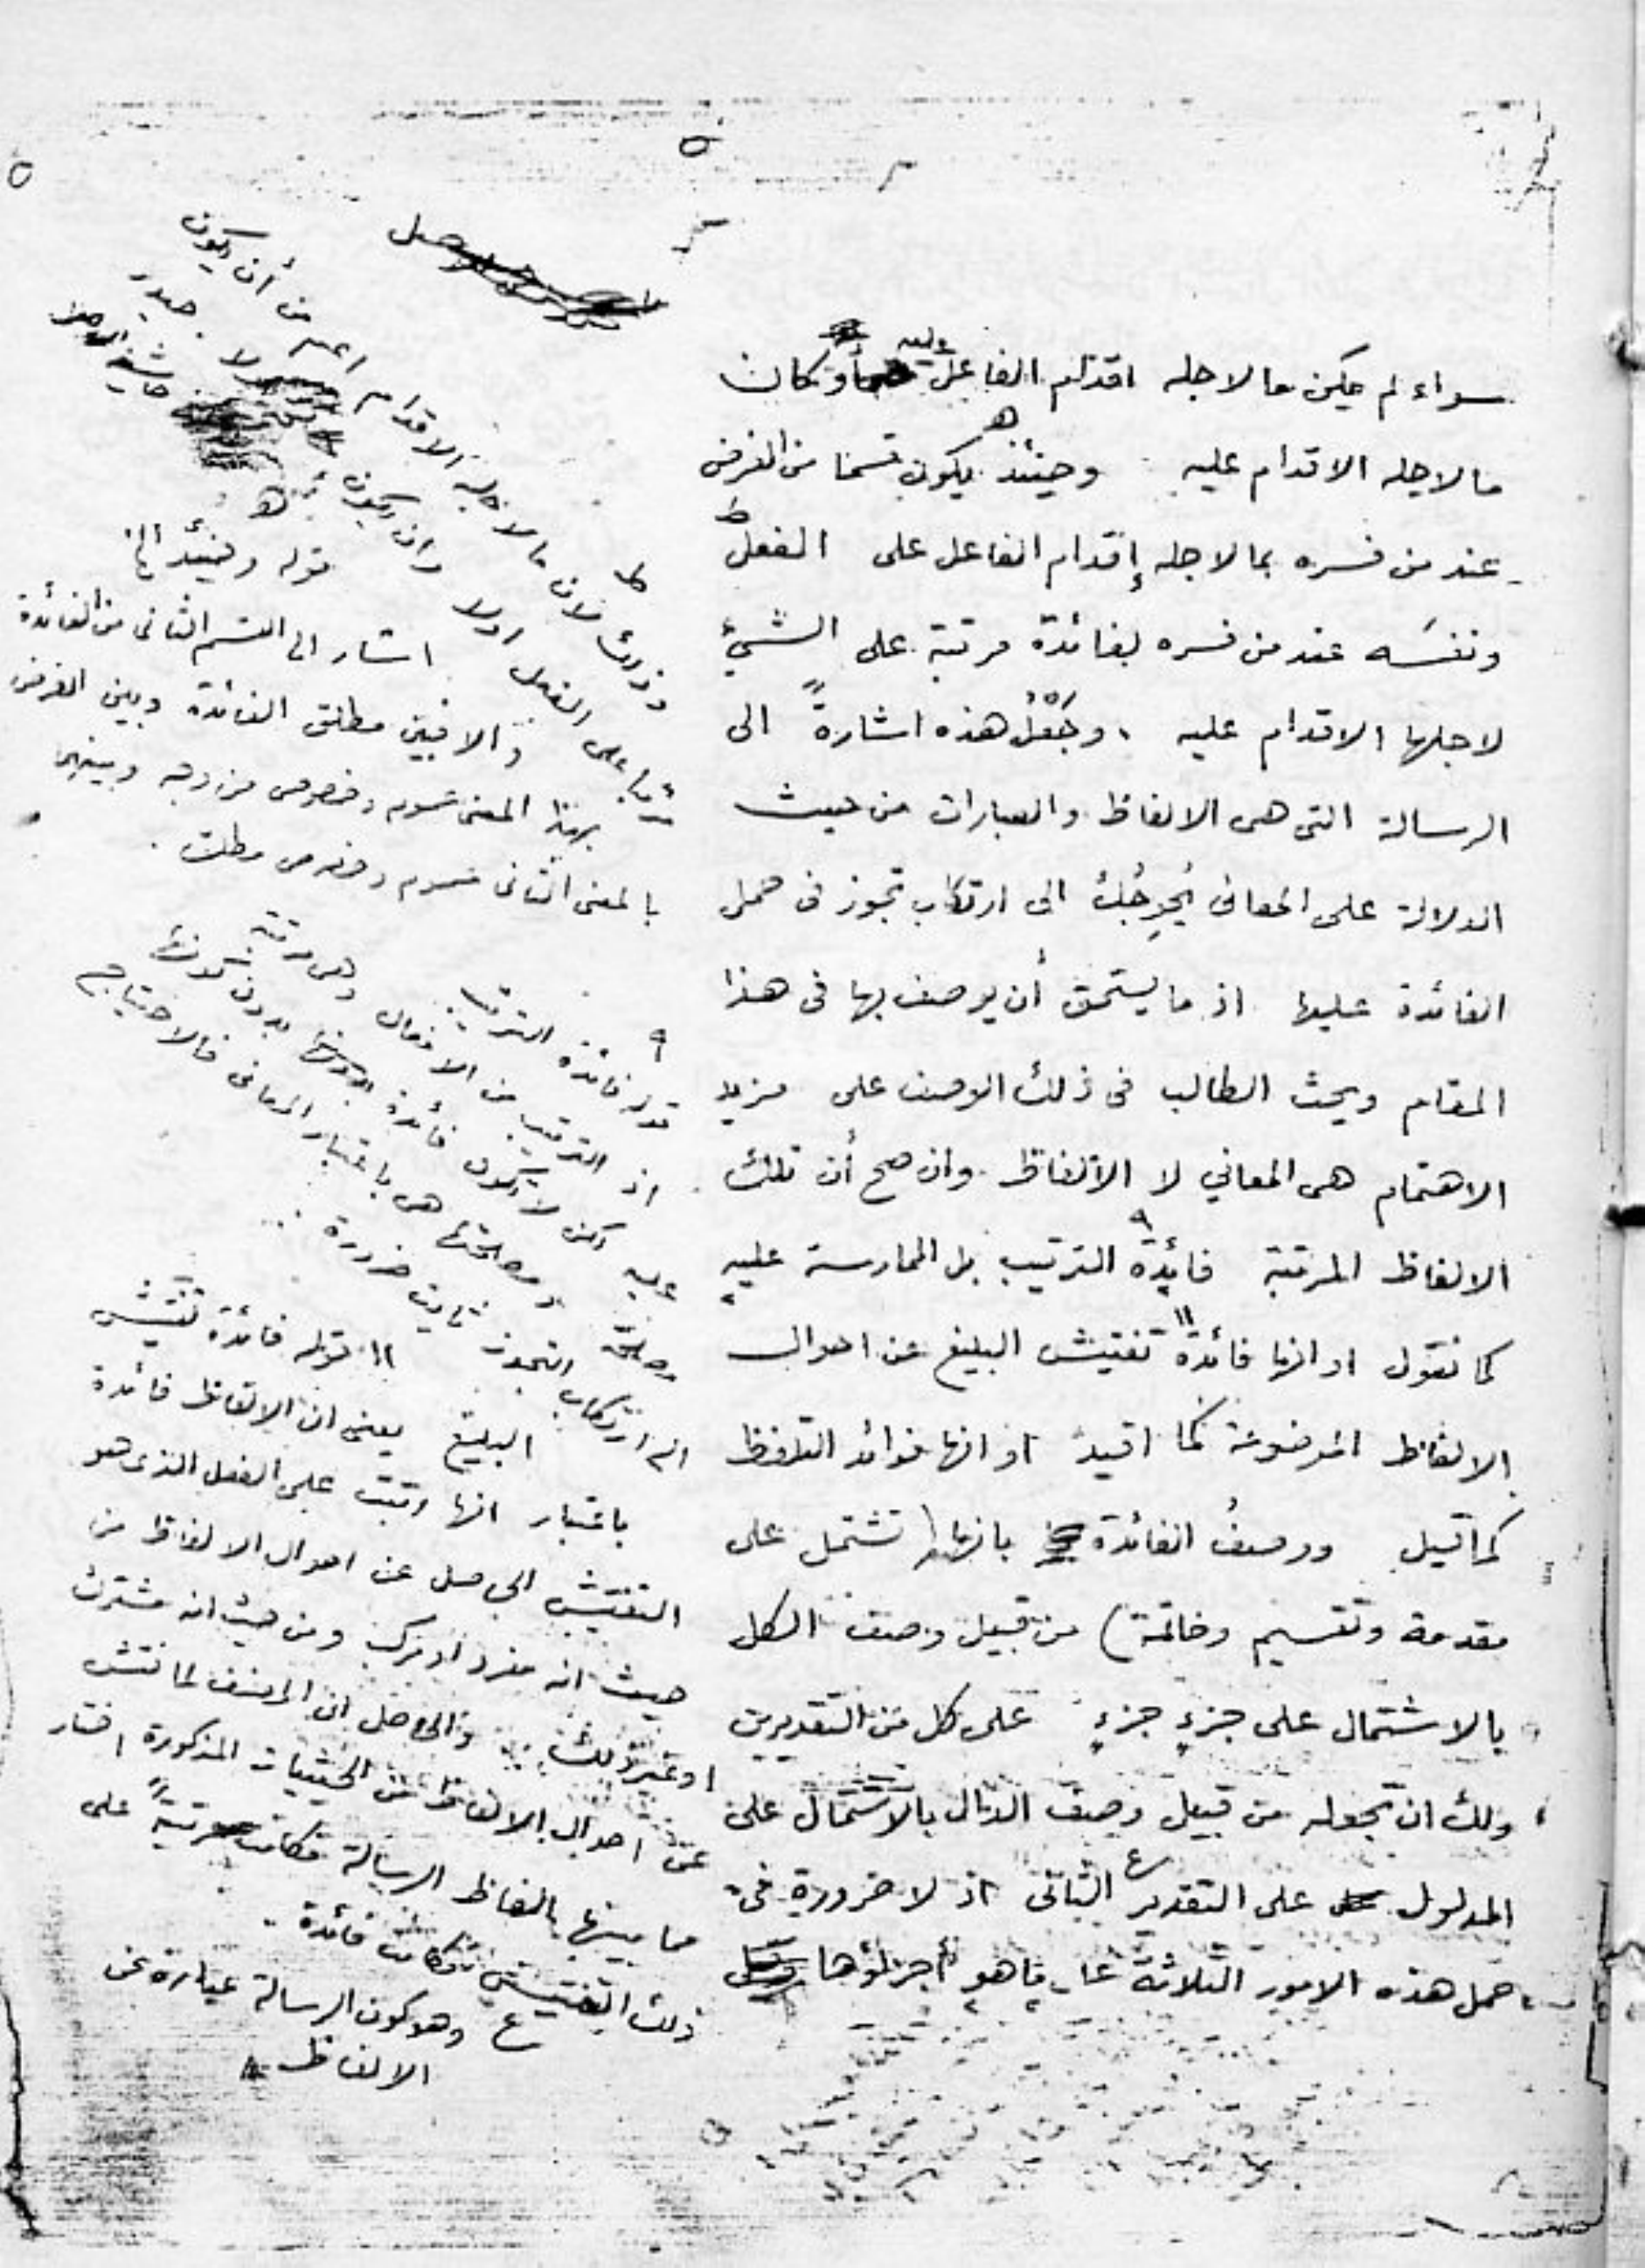 سواء لم يكن ما لاجله اقدام الفاعل عليه أو كان
ما لاجله الاقدام عليه وحينئذ يكون قسما من الغرض
عند من فسره بما لاجله إقدام الفاعل على الفعل
ونفسَه عند من فسره بفائدة مرتبة على الشيئ
لاجلها الاقدام عليه ، وجَعْلُ هذه اشارةً الى
الرسالة التى هى الالفاظ والعبارات من حيث
الدلالة على المعانى يُحوِجُك الى ارتكاب تجوز فى حمل
الفائدة عليها اذ ما يستحق أن يوصف بها فى هذا
المقام ويحث الطالب فى ذلك الوصف على مزيد
الاهتمام هى المعاني لا الالفاظ وان صح أن تلك
الالفاظ المرتبة فائدة الترتيب بل الممارسة عليه
كما نقول او انها فائدة تفتيش البليغ عن احوال
الالفاظ الموضوعة كما اقيد او انها فوائد التلفظ
كما قيل ووصفُ الفائدة بانها (تشتمل على
مقدمة وتقسيم وخاتمة) من قبيل وصف الكل
بالاشتمال على جزءٍ جزءٍ على كل من التقديرين
ولك ان تجعله من قبيل وصف الدال بالاشتمال على
المدلول على التقدير الثانى اذ لا ضرورة فى
حمل هذه الامور الثلاثة على ما هو أجزاؤها
٥
اعم من أن يكون
ط وذلك لان ما لاجله الاقدام
على الفعل اولا وان يكون
قوله وحينئذ الخ
اشار الى القسم الثانى من الفائدة
والا فبين مطلق الفائدة وبين الغرض
بهذا المعنى عموم وخصوص من وجه وبينهما
بالمعنى الثانى عموم وخصوص مطلق .
٩ قوله فائدة الترتيب
اذ الترتيب من الافعال وهى مرتبة
عليه لكن لا يكون فائدة بدون كونها
مصلحة ومصلحتها هى باعتبار المعانى فالاحتياج
الى ارتكاب التجوز ثابت ضرورة
١١ قوله فائدة تفتيش
البليغ يعنى ان الالفاظ فائدة
باعتبار انها رتبت على الفعل الذى هو
التفتيش الحاصل عن احوال الالفاظ من
حيث انه مفرد او مركب ومن حيث انه مشترك
او غير ذلك والحاصل ان المصنف لما فتش
عن احوال الالفاظ عن الحيثيات المذكورة اختار
مما بينها الفاظ الرسالة فكانت مرتبةً على
ذلك التفتيش فكانت فائدة
ع وهو كون الرسالة عبارة عن
الالفاظ